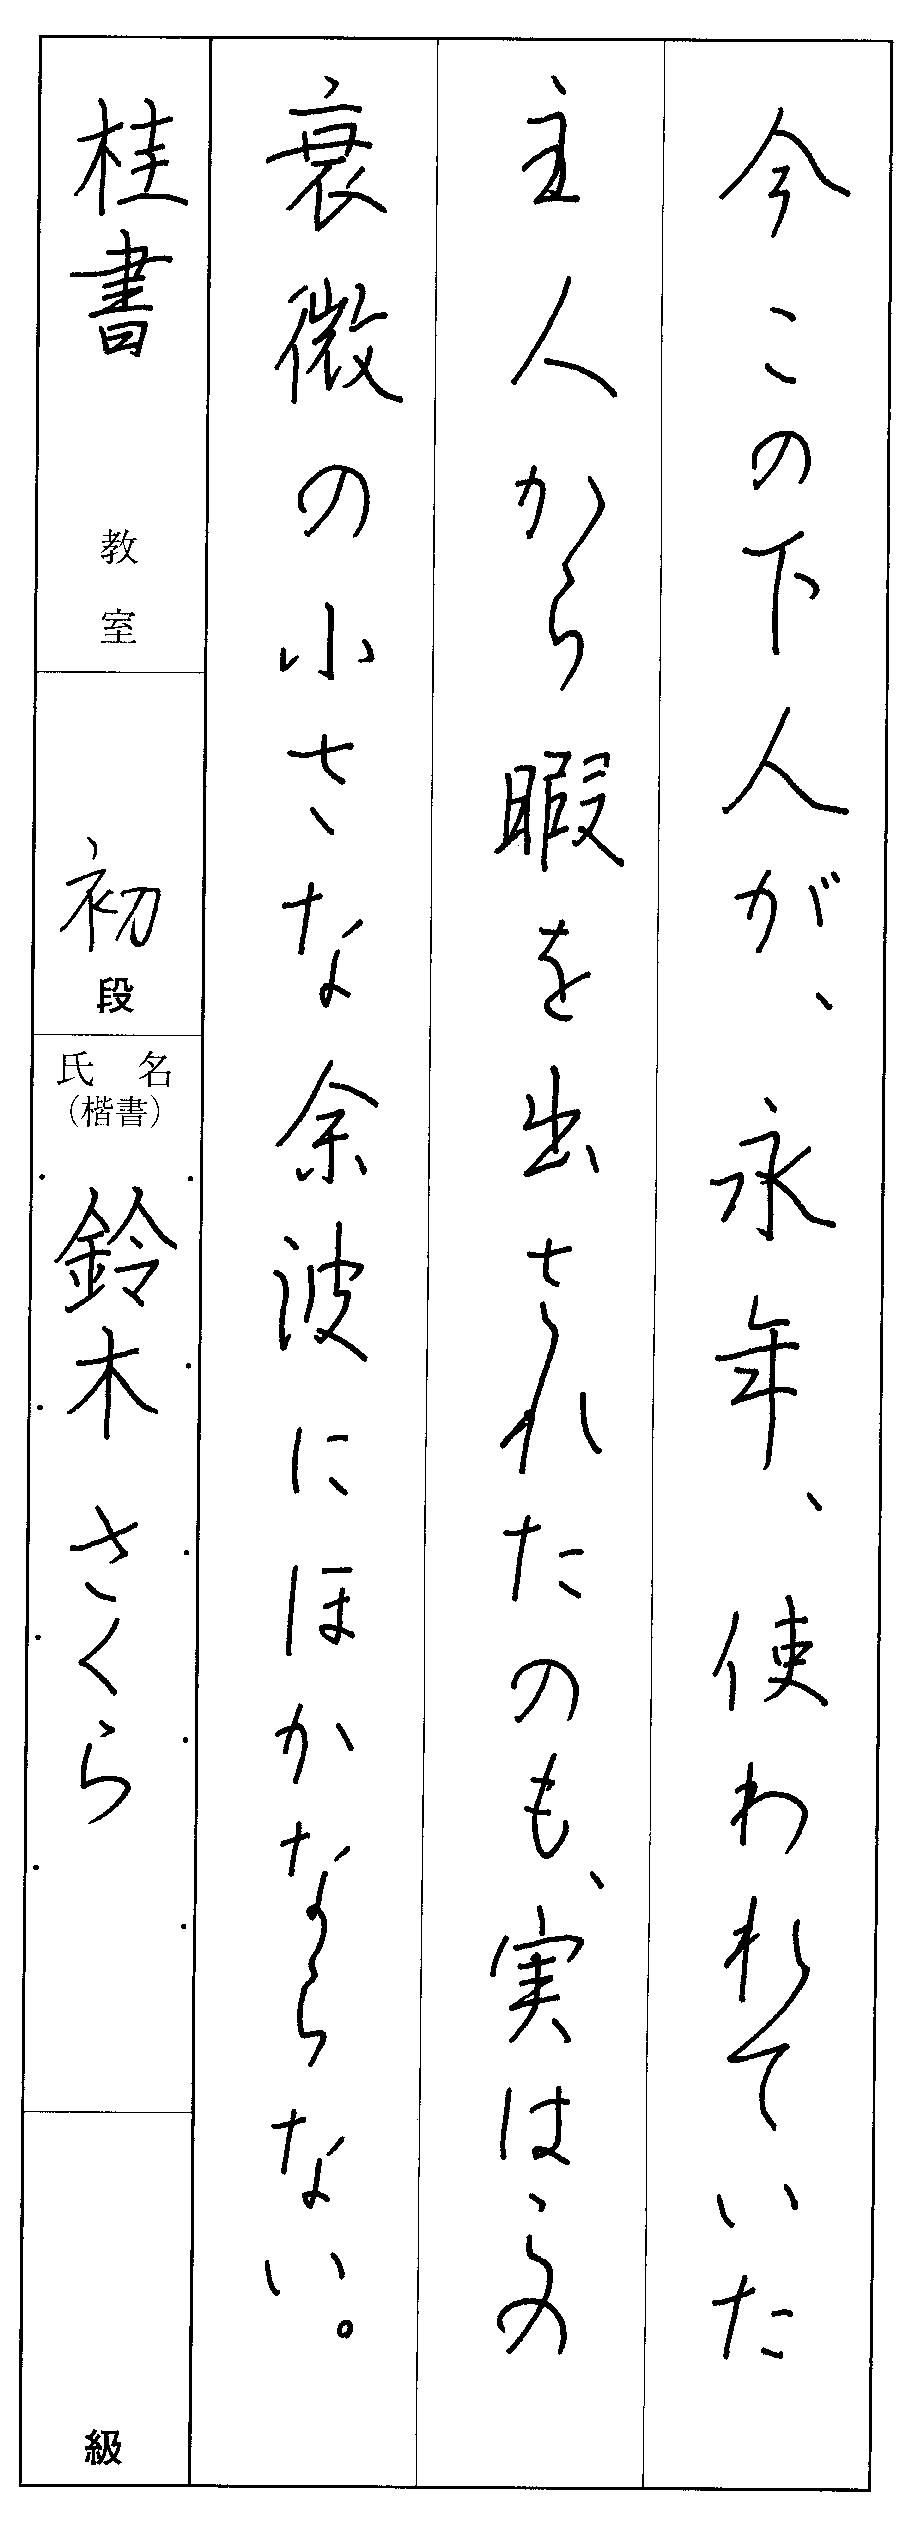 今この下人が、永年、使われていた
主人から暇を出されたのも、実はこの
衰微の小さな余波にほかならない。
桂書 教室
初段
氏名
(楷書)
鈴木さくら
級